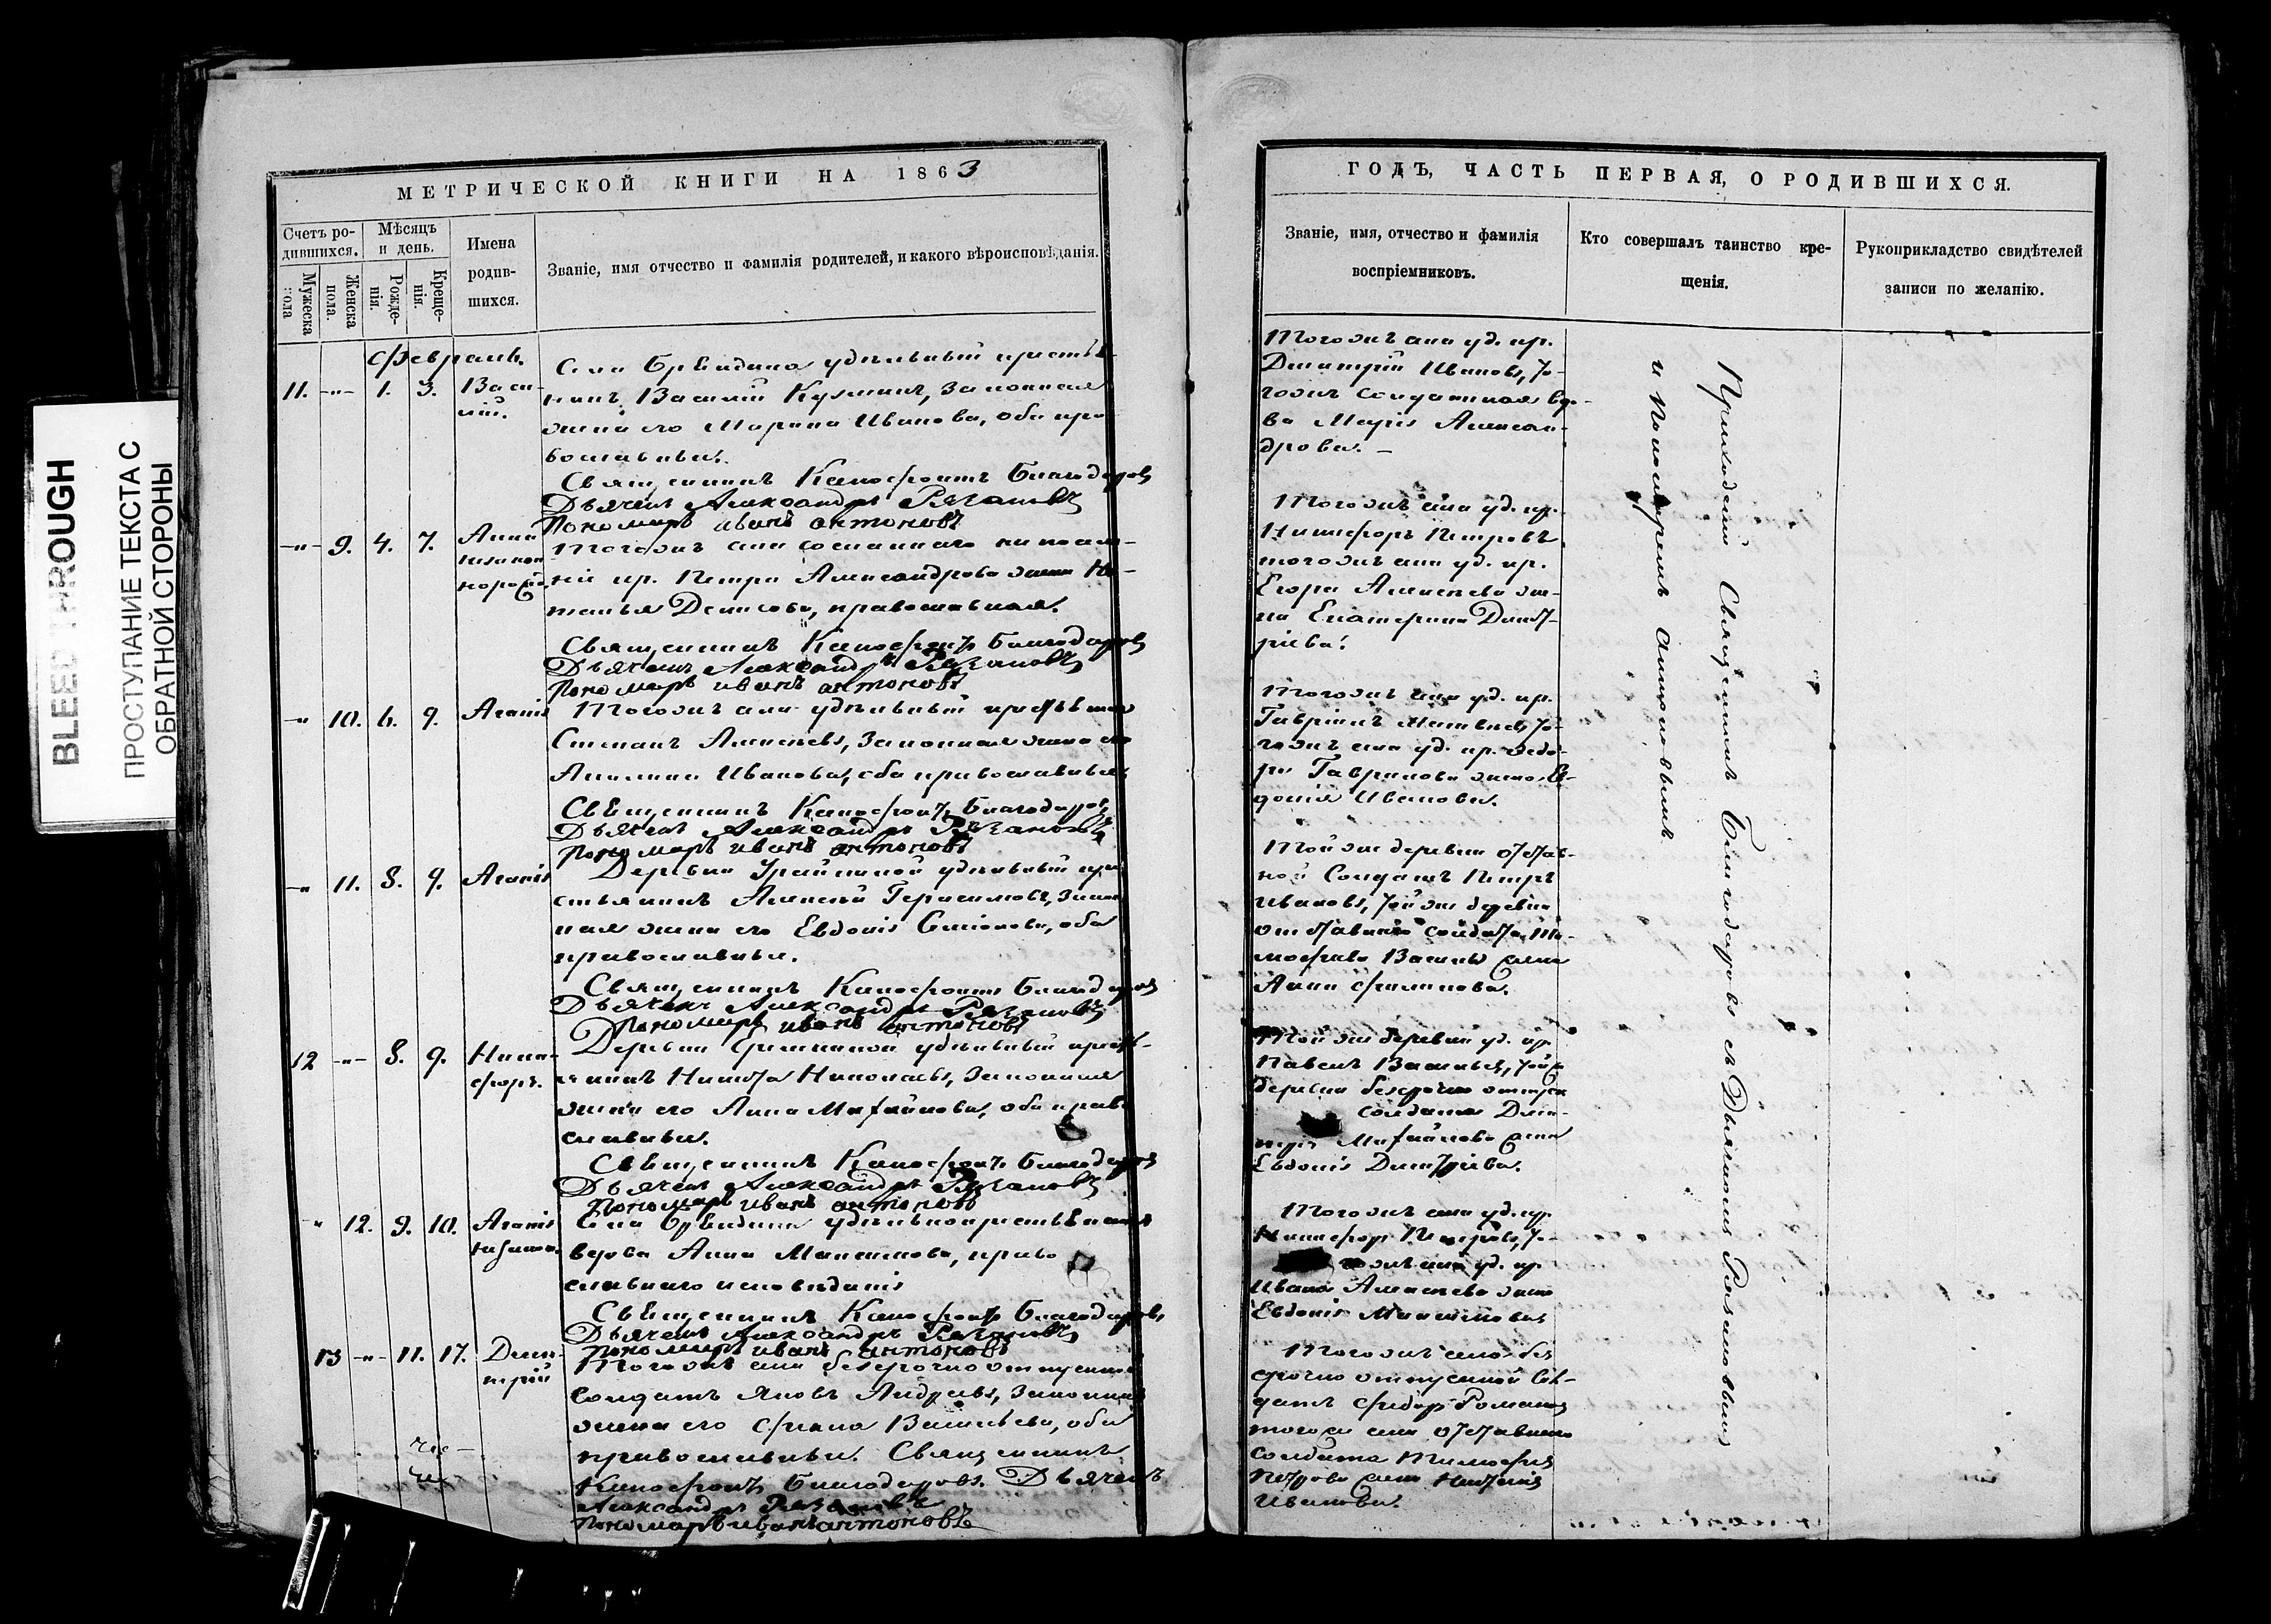 BLEED THROUGH
ПРОСТУПАНИЕ ТЕКСТА С
ОБРАТНОЙ СТОРОНЫ
МЕТРИЧЕСКОЙ КНИГИ НА 1863
Счетъ ро-
дившихся.
Мужеска
пола
Женска
пола.
Мѣсяцъ
и день.
Рожде-
нія.
Креще-
нія.
Имена
родив-
шихся.
Званіе, имя отчество и фамилія родителей, и какого вѣроисповѣданія.
Февраль.
11. -"- 1. 3. Васи-
лій.
Села удѣльный крестья-
нинъ Василій Кузминъ, законная
жена его Марина Иванова, оба пра
вославные.
Священникъ Ксенофонтъ Благодаровъ
Дьячекъ Александръ Рязановъ
Пономарь иванъ антоновъ
-"- 9. 4. 7. Анна
Тогожъ села сосланнаго на поселе-
ніе кр. Петра Александрова жена На-
талья Денисова, православная.
Священникъ Ксенофонтъ Благодаровъ
Дьячекъ Александръ Рязановъ
Пономарь иванъ антоновъ
-" 10. 6. 9. Агапія
Тогожъ села удѣльный крестьянинъ
Степанъ Алексѣевъ, законная жена его
Акилина Иванова, оба православные
Священникъ Ксенофонтъ Благодаровъ
Дьячекъ Александръ Рязановъ
Пономарь иванъ антоновъ
-" 11. 8. 9. Агапія
Деревни удѣльный кре
стьянинъ Алексѣй Герасимовъ, закон
ная жена его Евдокія Симіонова, оба
православные.
Священникъ Ксенофонтъ Благодаровъ
Дьячекъ Александръ Рязановъ
Пономарь иванъ антоновъ
12 -"- 8. 9. Ники-
форъ.
Деревни удѣльный кресть-
янинъ Никита Николаевъ, законная
жена его Анна Михайлова, оба право
славные.
Священникъ Ксенофонтъ Благодаровъ
Дьячекъ Александръ Рязановъ
Пономарь иванъ антоновъ
" 12. 9. 10. Агапія
незакон.
Села удѣльнокрестьянская
вдова Анна Максимова, право
славнаго исповѣданія
Священникъ Ксенофонтъ Благодаровъ
Дьячекъ Александръ Рязановъ
Пономарь иванъ антоновъ
13 -"- 11. 17. Дими-
трій
Тогожъ села безсрочно отпускной
солдатъ Яковъ Андреевъ, законная
жена его Васильева, оба
православные. Священникъ
Ксенофонтъ Благодаровъ. Дьячекъ
Александръ Рязановъ
Пономарь иванъ антоновъ
ГОДЪ, ЧАСТЬ ПЕРВАЯ, О РОДИВШИХСЯ.
Званіе, имя, отчество и фамилія
воспріемниковъ.
Кто совершалъ таинство кре-
щенія.
Рукоприкладство свидѣтелей
записи по желанію.
Тогожъ села уд. кр.
Димитрій Ивановъ, то-
гожъ солдатская вдо-
ва Марія Алексан-
дрова.
Тогожъ села уд. кр.
Никифоръ Петровъ
тогожъ села уд. кр.
Егора Алексѣева же-
на Екатерина Димит-
ріева.
Тогожъ села уд. кр.
Гавріилъ Матвѣевъ, то-
гожъ села уд. кр. Ѳедо-
ра Гаврилова жена Ев-
докія Иванова.
Той же деревни отстав-
ной Солдатъ Петръ
Ивановъ, той же деревни
отставнаго солдата Ти-
мофѣя Васильева жена
Анна Филипова.
Той же деревни уд. кр.
Павелъ Васильевъ, той же
деревни безсрочно отпуск
солдата Дми-
трія Михайлова жена
Евдокія Димитріева.
Тогожъ села уд. кр.
Никифоръ Петровъ, то-
гожъ села уд. кр.
Ивана Алексѣева жена
Евдокія Максимова
Тогожъ села без
срочно отпускной Сол-
датъ Федоръ Романовъ
тогоже села отставнаго
солдата Тимофея
Петрова жена
Иванова.
Приходскій Священникъ Благодаровъ съ Дьячкомъ Рязановымъ
и Пономаремъ Антоновымъ.